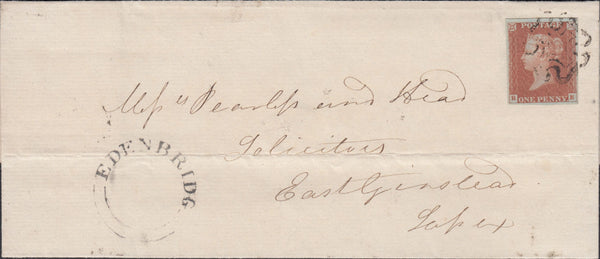 POSTAGE
ONE PENNY
Messrs Pearless and Head
Solicitors
East Grinstead
Sussex
EDENBRIDG